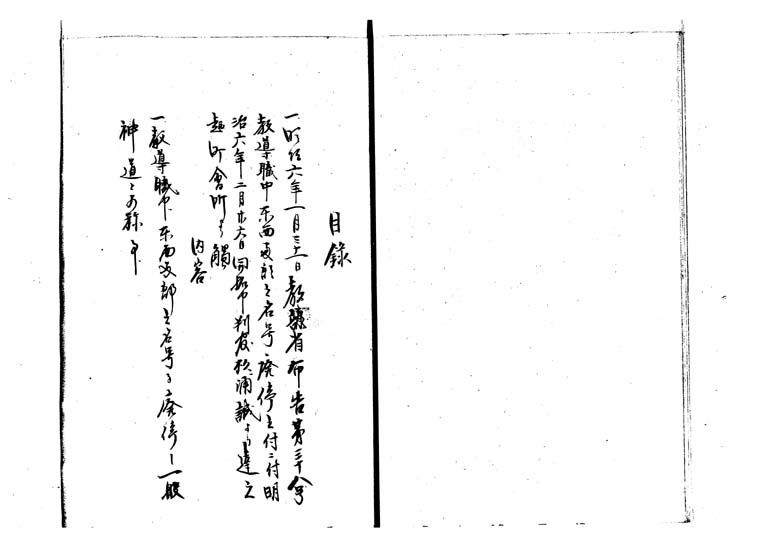 目録
一明治六年一月三十一日教部省布告第三十号
教導職中東西両部之名号廃停之付二付明
治六年二月廿六日同 達之
麹町會所ゟ觸
内容
一教導職中東西両部之名号ヲ廃停シ一般
神道ト可称事